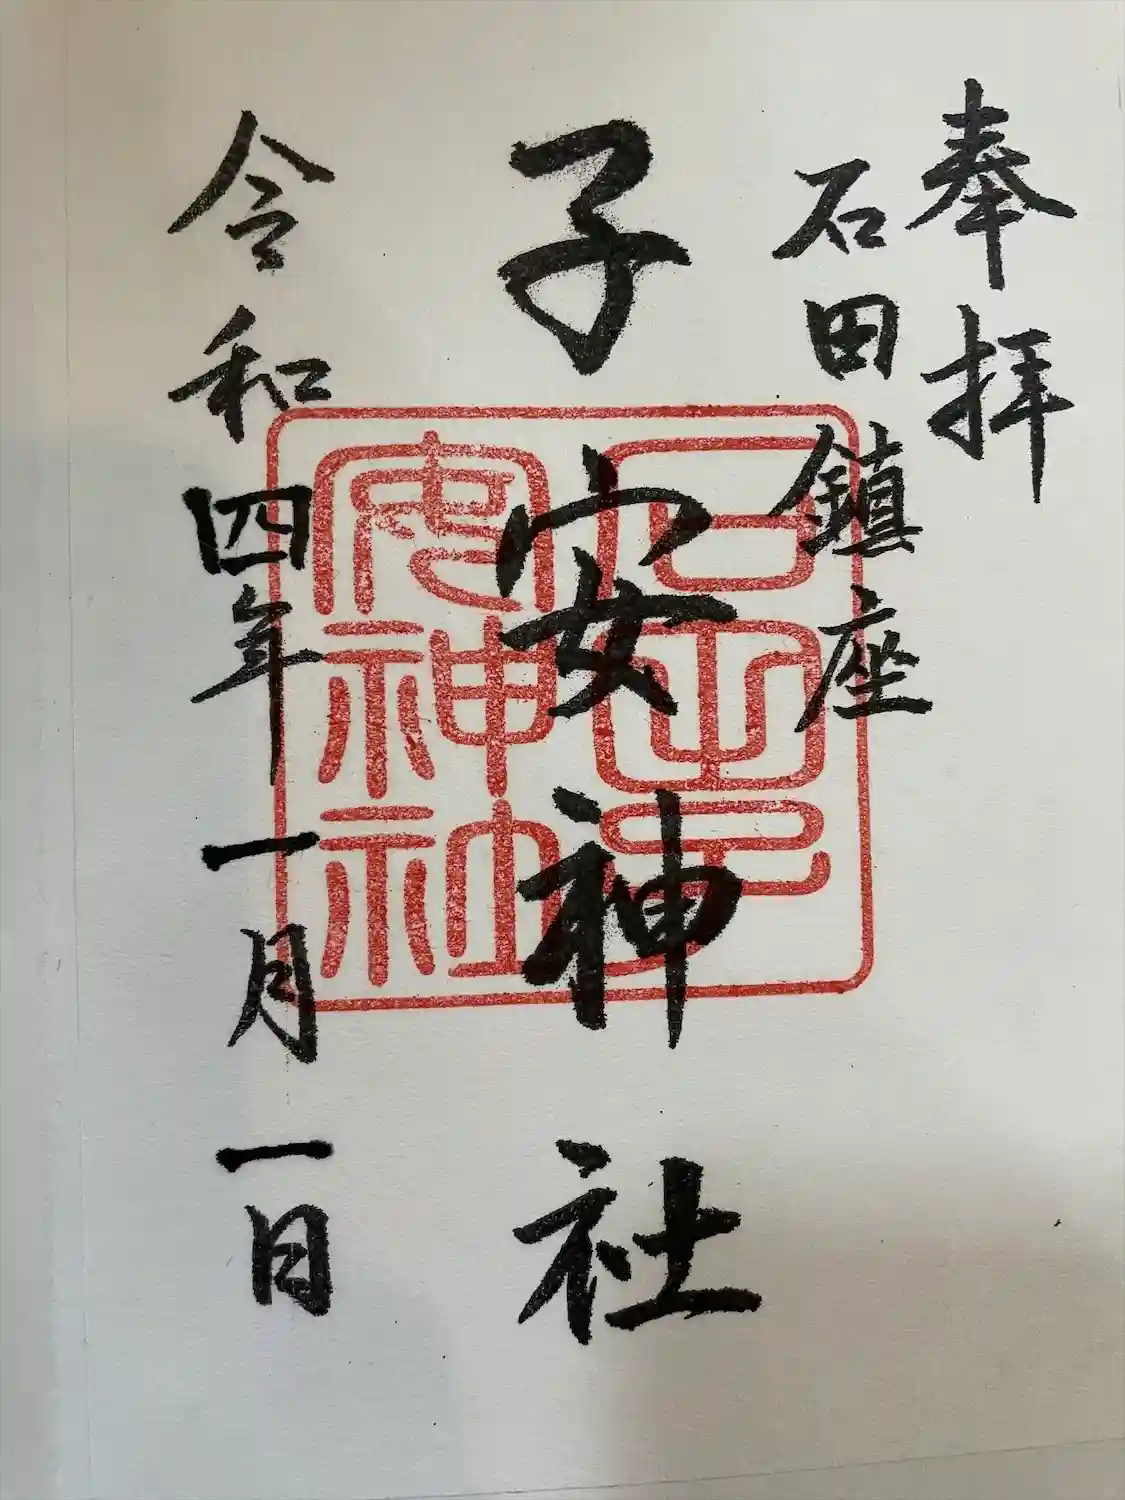 奉拝
石田鎮座
子安神社
石田子
安神社
令和四年一月一日